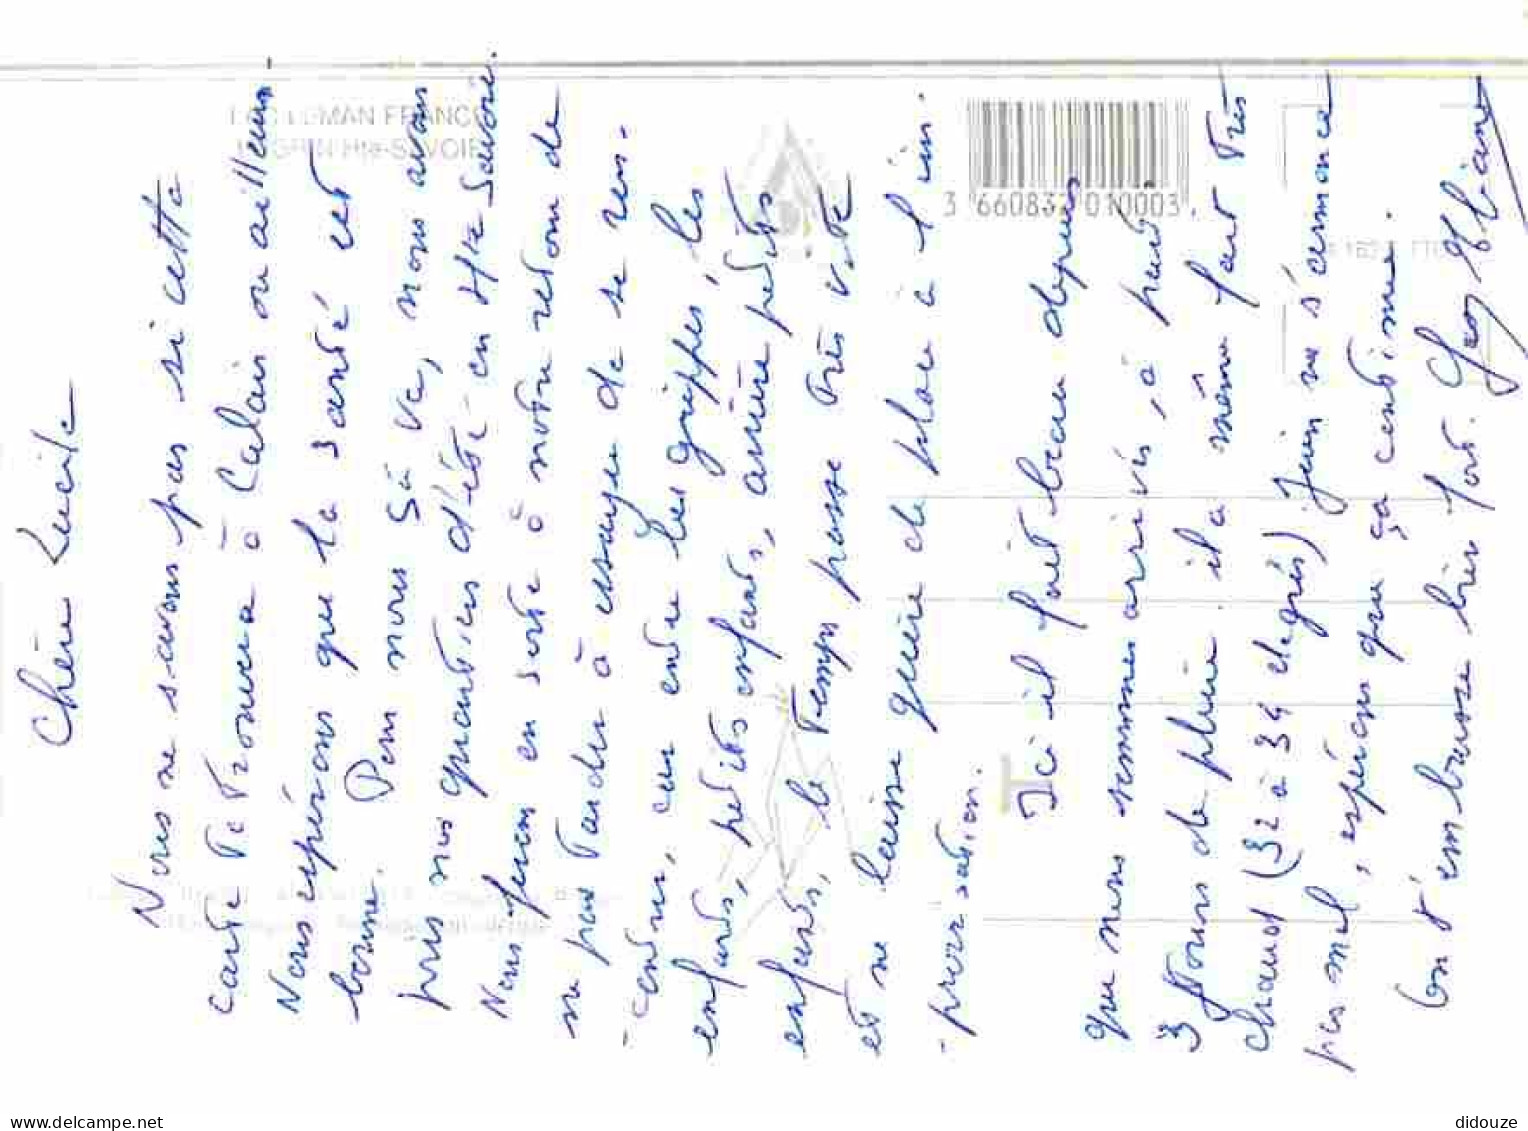 Chère Lucile
Nous ne savons pas si cette
carte te trouvera à Calais ou ailleurs
Nous espérons que la santé est
bonne. Pour nous ça va, nous avons
pris nos quartiers d'été en Hte Savoie.
Nous ferons en sorte à notre retour de
ne pas tarder à essayer de se ren-
-contrer, car entre les grippes, les
enfants, petits enfants, arrière petits
enfants, le temps passe très vite
et ne laisse guère de place à l'im-
-provisation.
Ici il fait beau depuis
que nous sommes arrivés, à part
3 jours de pluie. il a même fait très
chaud (32 à 34 degrés) Juin ne s'annonce
pas mal, espérons que ça continue.
On t'embrasse bien fort.
LAC LEMAN FRANCE
LUGRIN Hte-SAVOIE
3 660832 010003
www.delcampe.net
didouze